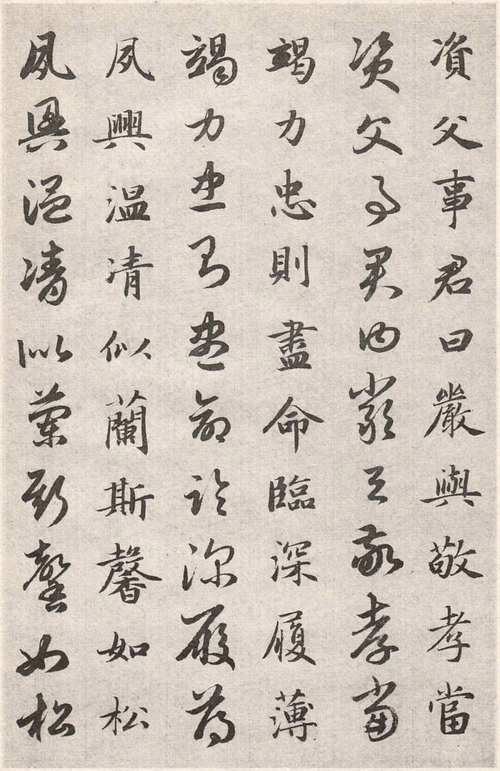 資父事君曰嚴與敬孝當
資父事君曰嚴與敬孝當
竭力忠則盡命臨深履薄
竭力忠則盡命臨深履薄
夙興温凊似蘭斯馨如松
夙興温凊似蘭斯馨如松